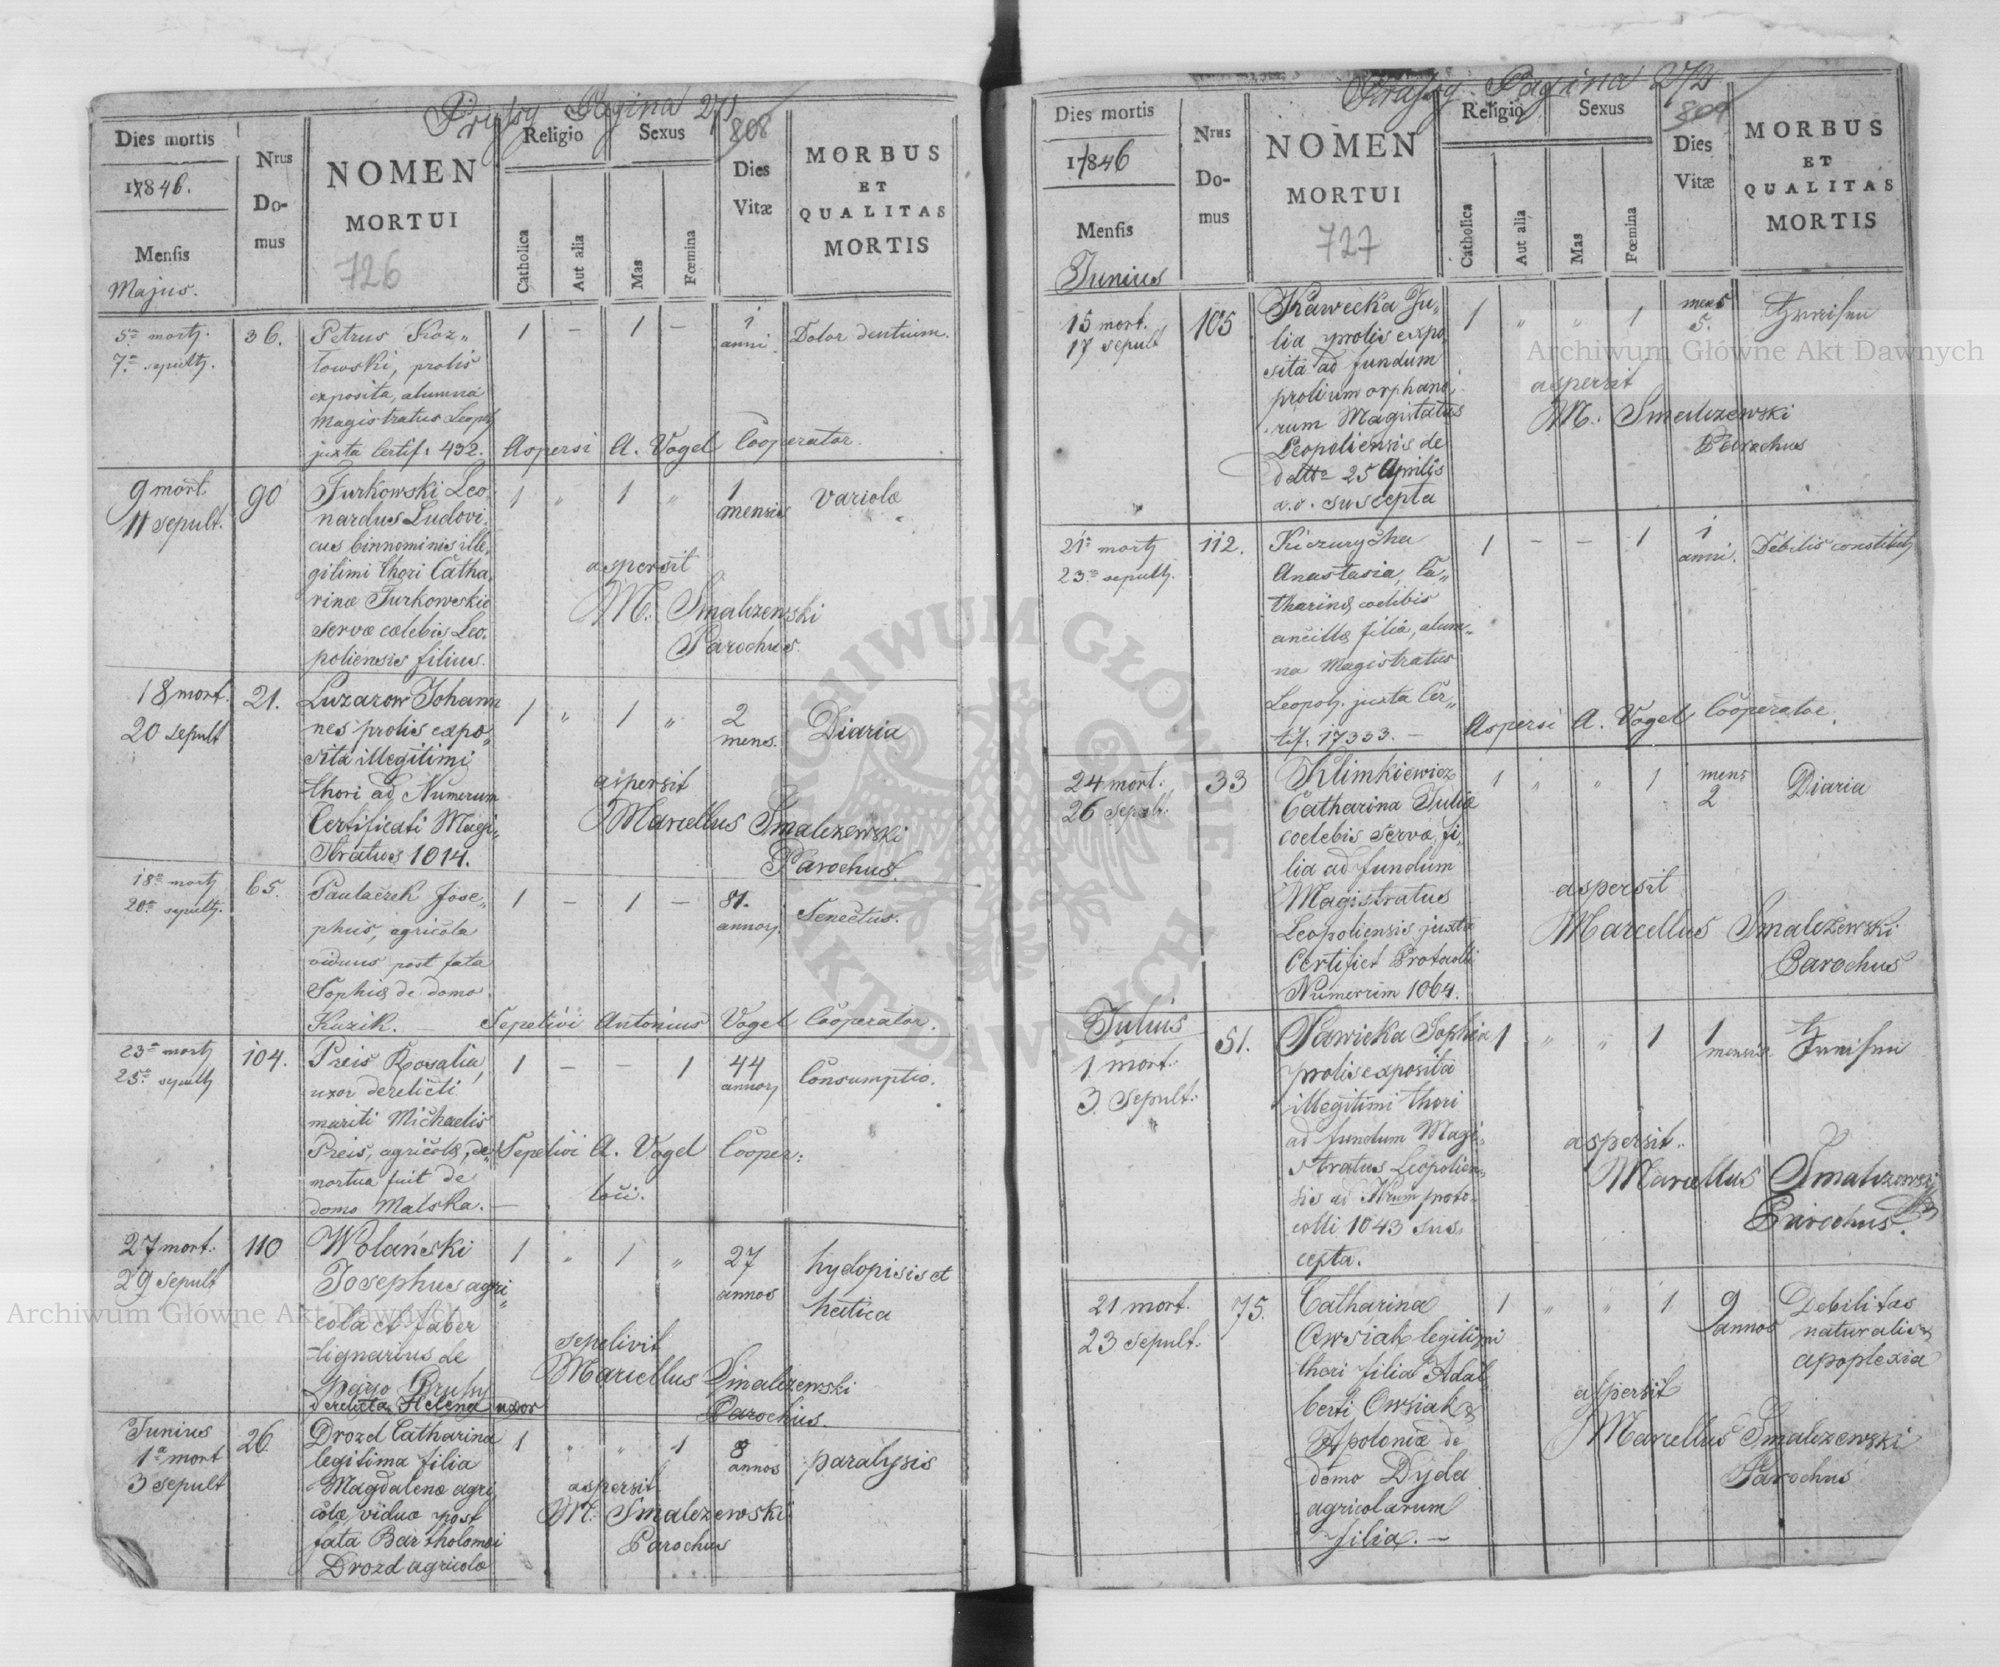 Prussy Pagina 271
808
Dies mortis
1846.
Mensis
Majus.
Nrus
Do-
mus
NOMEN
MORTUI
726
Religio
Catholica
Aut alia
Sexus
Mas
Fœmina
Dies
Vitæ
MORBUS
ET
QUALITAS
MORTIS
5ta mortj.
7ma sepultj.
36.
Petrus Koz„
łowski, prolis
exposita, alumna
Magistratus Leopolj
juxta Certif: 432.
1 – 1 –
1
anni
Dolor dentium.
Aspersi A. Vogel Cooperator.
9 mort.
11 sepult.
90
Turkowski Leo
nardus Ludovi
cus binnominis ille,
gitimi thori Catha,
rinæ Turkowskie
servæ cœlebis Leo,
poliensis filius.
1 „ 1 „
1
mensis
Variolæ
aspersit
M. Smalczewski
Parochus.
18 mort.
20 sepult
21.
Luzarow Johann
nes prolis expo,
sita illegitimi
thori ad Numerum
Certificati Magi,
stratus 1014.
1 „ 1 „
2
mens.
Diaria
aspersit
Marcellus Smalczewski
Parochus.
18va mortj
20ma sepultj.
65.
Paulaczek Jose„
phus, agricola
viduus post fata
Sophiæ de domo
Kuzik. –
1 – 1 –
81.
annorj.
Senectus.
Sepelivi Antonius Vogel Cooperator.
23tia mortj
25ta sepultj
104.
Preis Rosalia,
uxor derelicti
mariti Michaelis
Preis, agricolæ, de„
mortua fuit de
domo Malska. –
1 – – 1
44
annorj
Consumptio.
Sepelivi A. Vogel Cooper:
tor.
27 mort.
29 sepult
110
Wolański
Josephus agri,
cola et faber
lignarius de
pago Prussy
derelicta Helena uxor
1 „ 1 „
27
annos
hydopisis et
hectica
sepelivit
Marcellus Smalczewski
Parochus.
Junius
1a mort
3 sepult
26
Drozd Catharina
legitima filia
Magdalenæ agri,
colæ viduæ post
fata Bartholomei
Drozd agricolæ
1 „ „ 1
8
annos
paralysis
aspersit
M. Smalczewski
Parochus
Prussy Pagina 272
809
Dies mortis
1846
Mensis
Junius
Nrus
Do-
mus
NOMEN
MORTUI
727
Religio
Catholica
Aut alia
Sexus
Mas
Fœmina
Dies
Vitæ
MORBUS
ET
QUALITAS
MORTIS
15 mort.
17 sepult
105
Kawecka Ju„
lia prolis expo,
sita ad fundum
prolium orphano,
rum Magistratus
Leopoliensis de
datto 25 Aprilis
a.c. suscepta
1 „ „ 1
mens
5.
aspersit
M. Smalczewski
Parochus
21a mortj
23tia sepultj.
112.
Anastasia, Ca„
tharinæ cœlibis
ancillæ filia, alum„
na Magistratus
Leopolj. juxta Cer„
tif: 17333. –
1 – – 1
1
anni.
Debilis constitutj
Aspersi A. Vogel Cooperator.
24 mort.
26 sepult.
33
Klimkiewicz
Catharina Juliæ
coelebis servæ fi,
lia ad fundum
Magistratus
Leopoliensis juxta
Certifict Protocolli
Numerum 1064.
1 „ „ 1
mens
2
Diaria
aspersit
Marcellus Smalczewski
Parochus
Julius
1 mort:
3. sepult:
51.
Sawicka Sophia
prolis exposita
illegitimi thori
ad fundum Magi,
stratus Leopolien„
sis ad Nrum proto-
colli 1043 sus
cepta.
1 „ „ 1
1
mensis
aspersit..
Marcellus Smalczewski
Parochus.
21 mort.
23 sepult:
75.
Catharina
Owsiak legitimi
thori filia Adal
berti Owsiak &
Apoloniæ de
domo Dyda
agricolarum
filia. –
1 „ „ 1
9
annos
Debilitas
naturalis &
apoplexia
aspersit
Marcellus Smalczewski
Parochus
Archiwum Główne Akt Dawnych
Archiwum Główne Akt Dawnych
ARCHIWUM GŁÓWNE AKT DAWNYCH